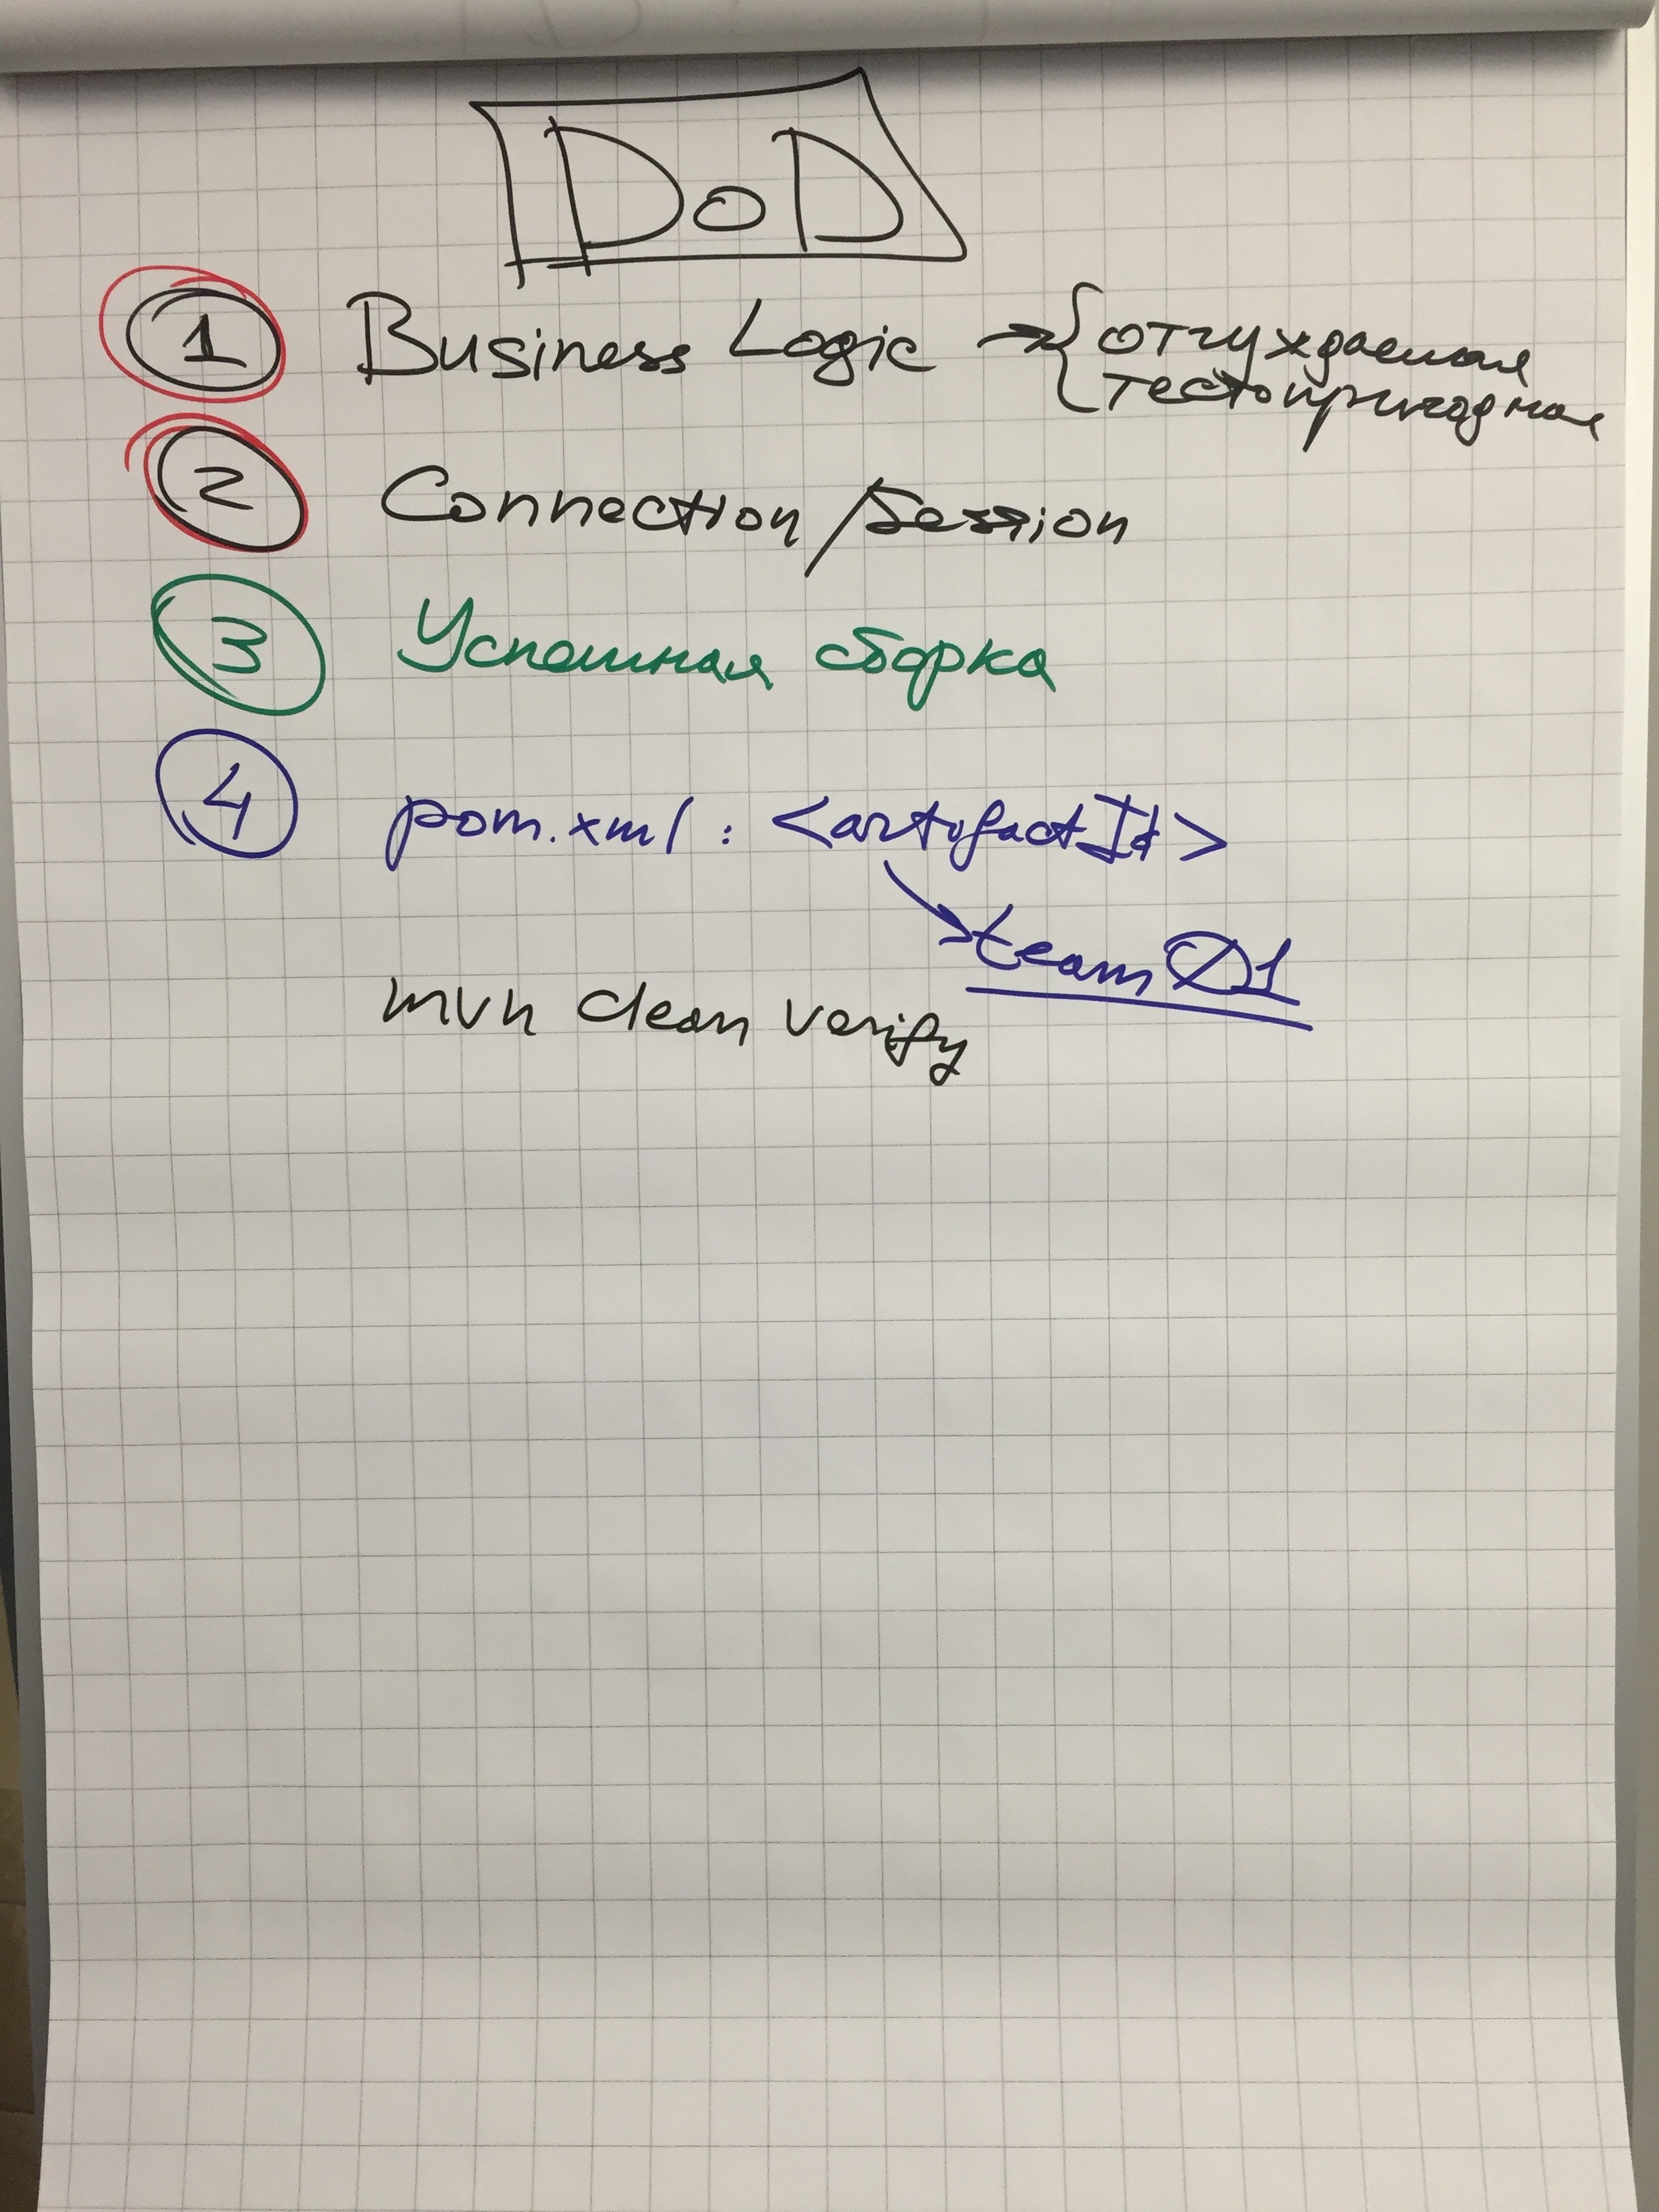 DoD
1 Business Logic → { отчуждаемая
{ тестопригодная
2 Connection/Session
3 Успешная сборка
4 pom.xml : <artyfactId>
→ team01
mvn clean verify